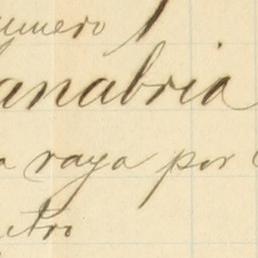 numero
anabria
a raya por
etro